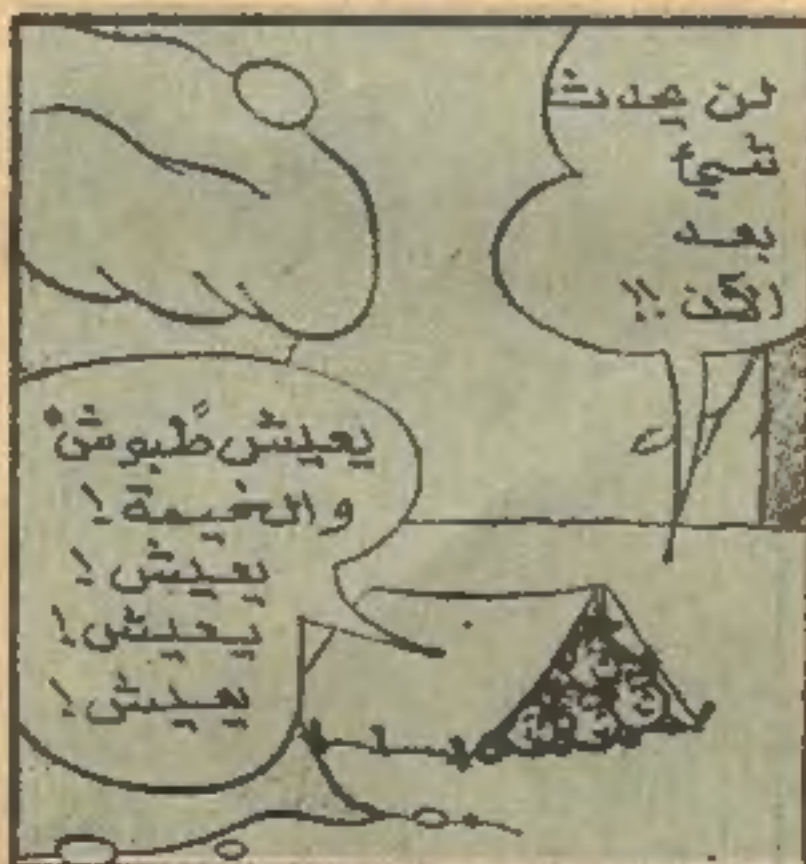 لن يحدث
شيئا
بعد
الآن !!
يعيش طبوش
والخيمة !
يعيش !
يعيش !
يعيش !